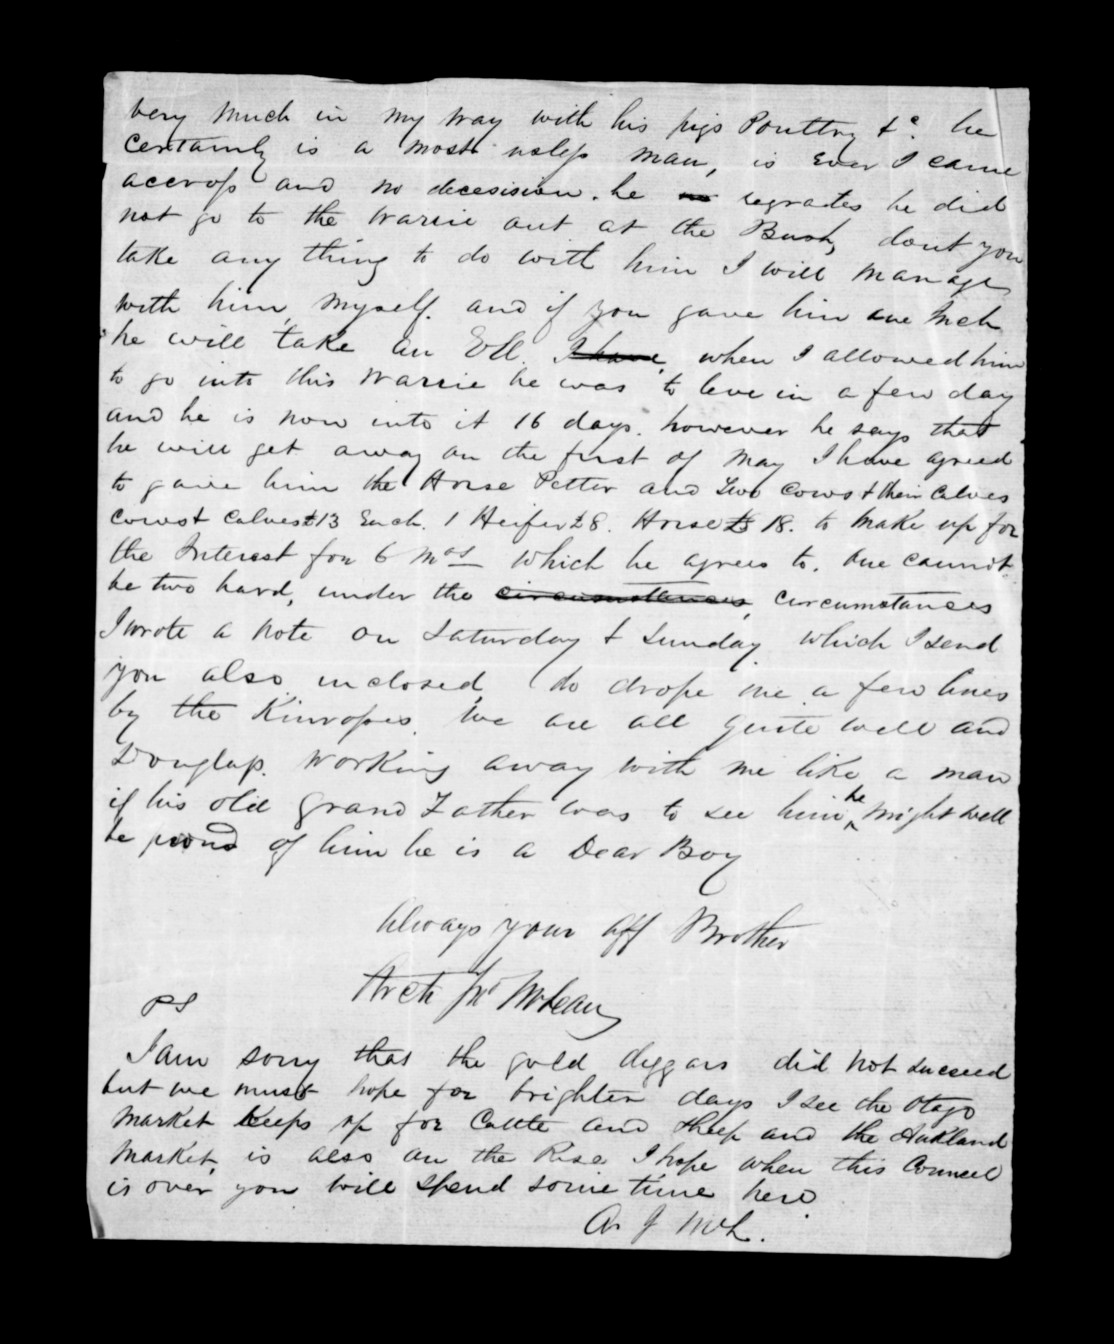 very much in my way with his pigs Poultry &c. he
certainly is a most usless man, is Ever I came
accross and no decesision. he regrates he did
not go to the Warrie out at the Bush, dont you
take any thing to do with him I will manage
with him, myself. and if you gave him one Inch
he will take an Ell. I have, when I allowed him
to go into this Warrie he was to leve in a few day
and he is now into it 16 days. however he says that
he will get away on the first of May I have agreed
to gaive him the Horse Petter and Two Cows & their Calves
cows & Calves £13 Each. 1 Heifer £8. Horse £ 18. to make up for
the Interest for 6 Mos which he agrees to. One cannot
be two hard, under the circumstances, circumstances
I wrote a note on Saturday & Sunday which I send
you also inclosed, do drope me a few lines
by the Kinross. We are all quite well and
Douglass. working away with me like a man
if his old Grand Father was to see him he might well
be proud of him he is a Dear Boy
Always your aff Brother
Arch Jno McLean
PS
I am sorry that the gold diggars did not succeed
but we must hope for brighter days I see the Otago
market keeps up for Cattle and Sheep and the Aukland
market, is also on the Rise I hope when this Counsel
is over you will spend some time here
Ar J McL.